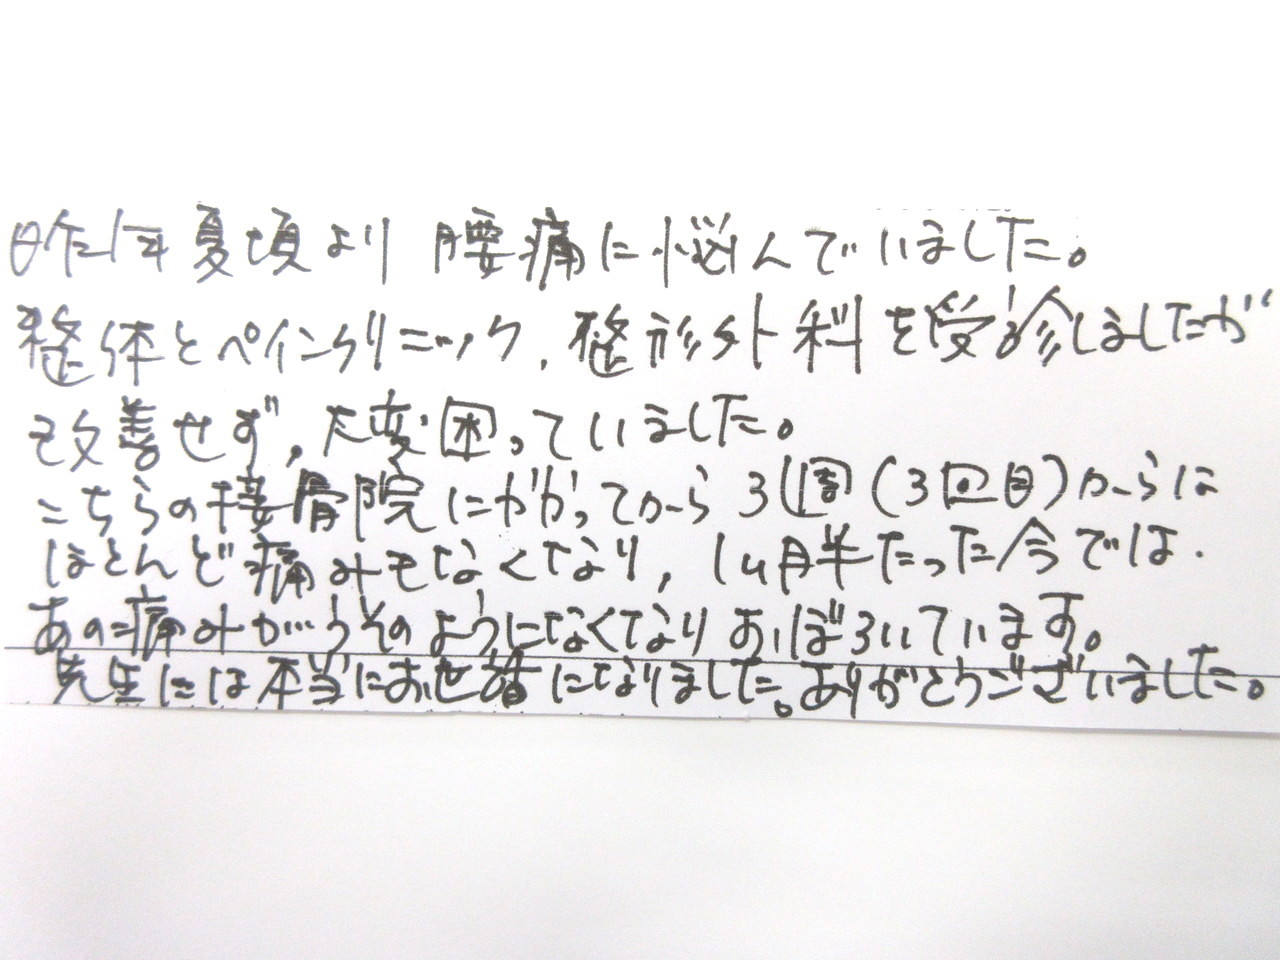 昨年夏頃より 腰痛に悩んでいました。
整体とペインクリニック、整形外科を受診しましたが
改善せず、大変困っていました。
こちらの接骨院にかかってから3週(3回目)からは
ほとんど痛みもなくなり、1ヵ月半たった今では、
あの痛みがうそのようになくなりおどろいています。
先生には本当にお世話になりました。ありがとうございました。